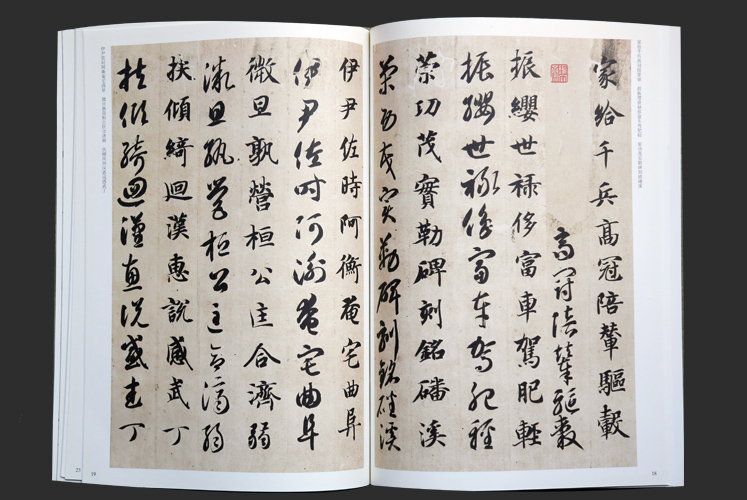 家給千兵高冠陪輦驅轂
高冠陪輦驅轂
振纓世祿侈富車駕肥輕
振纓世祿侈富車駕肥輕
策功茂實勒碑刻銘磻溪
策功茂實勒碑刻銘磻溪
18
伊尹佐時阿衡奄宅曲阜
伊尹佐時阿衡奄宅曲阜
微旦孰營桓公匡合濟弱
微旦孰營桓公匡合濟弱
扶傾綺迴漢惠說感武丁
扶傾綺迴漢惠說感武丁
19
23